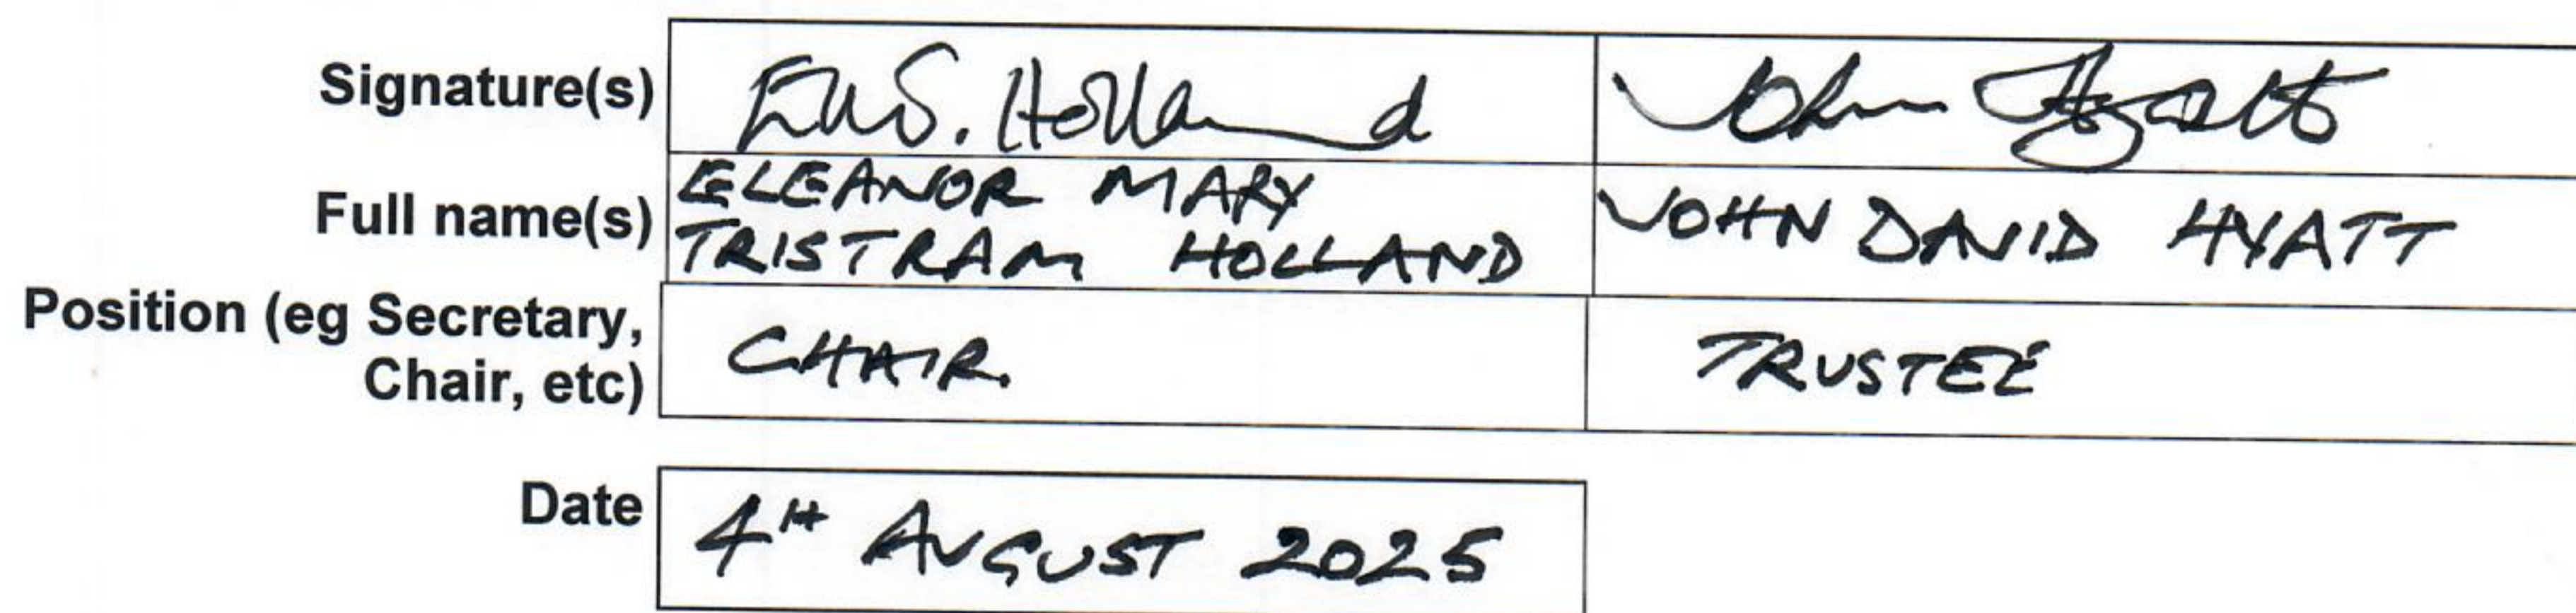 Signature(s) EMS. Holland John Hyatt
Full name(s) ELEANOR MARY TRISTRAM HOLLAND JOHN DAVID HYATT
Position (eg Secretary, Chair, etc) CHAIR. TRUSTEE
Date 4TH AUGUST 2025